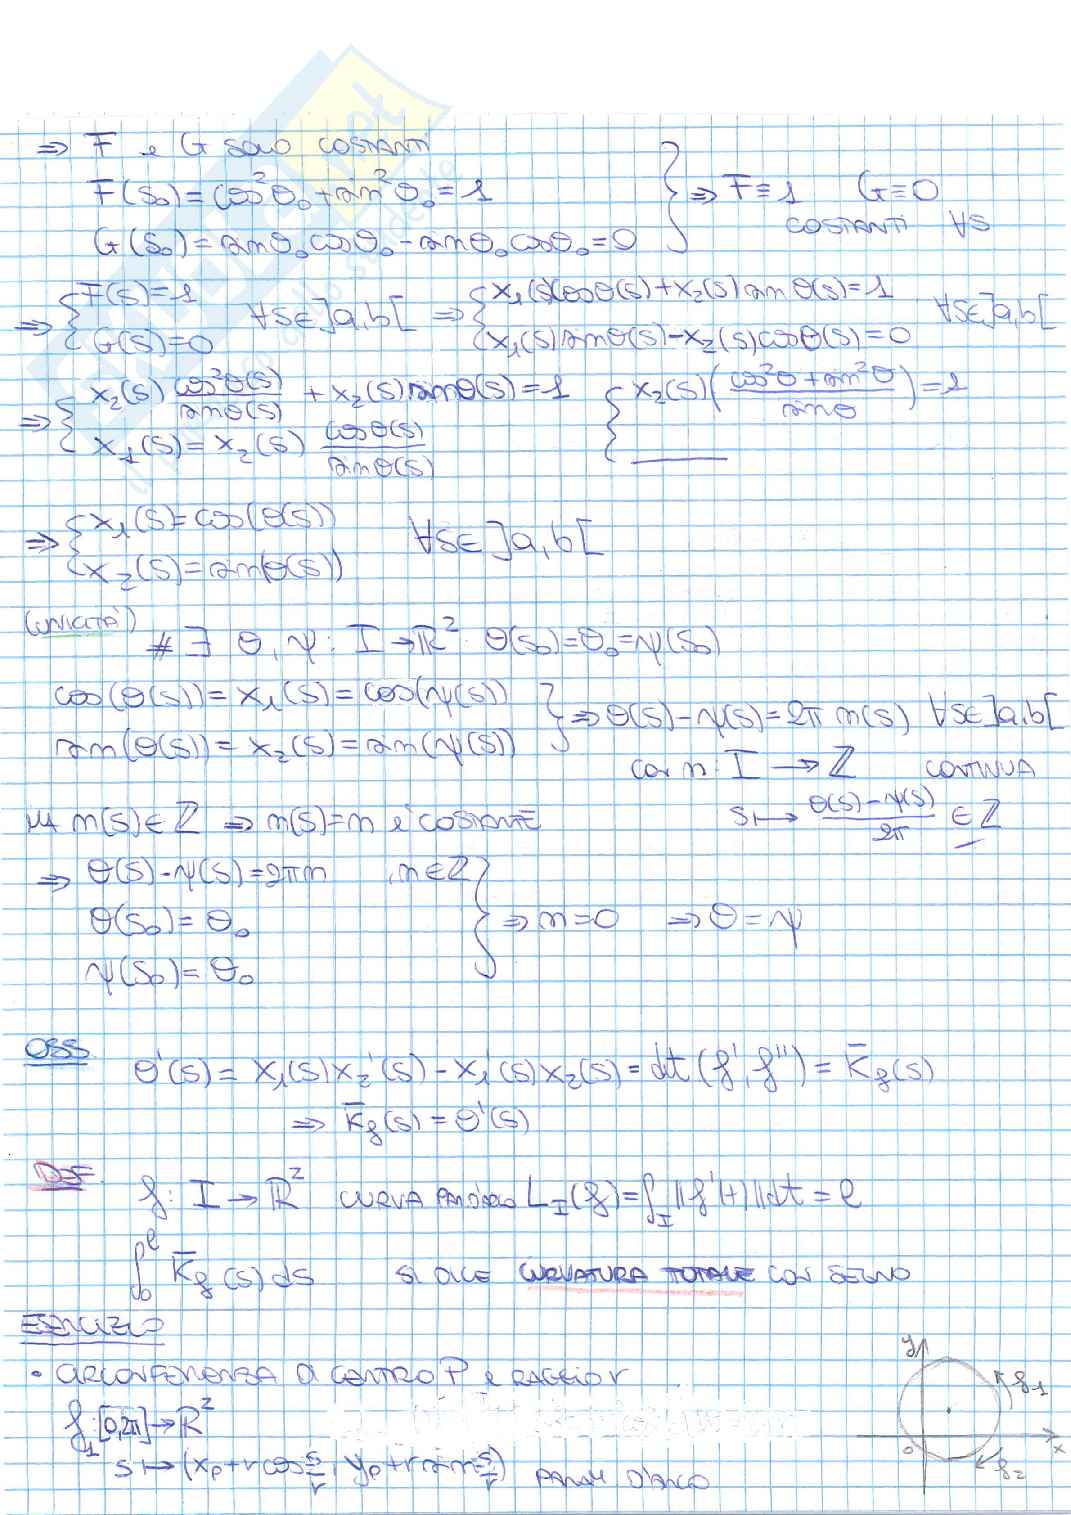 ⇒ F e G sono costanti
F(s₀) = cos²θ₀ + sin²θ₀ = 1
G(s₀) = sinθ₀ cosθ₀ - sinθ₀ cosθ₀ = 0
} ⇒ F ≡ 1 G ≡ 0
COSTANTI ∀s
⇒ { F(s) = 1
G(s) = 0 ∀s∈]a,b[ ⇒ { x₁(s)cosθ(s) + x₂(s) sin θ(s) = 1
x₁(s) sinθ(s) - x₂(s) cosθ(s) = 0 ∀s∈]a,b[
⇒ { x₂(s) cos²θ(s)/sinθ(s) + x₂(s) sinθ(s) = 1
x₁(s) = x₂(s) cosθ(s)/sinθ(s)
{ x₂(s) (cos²θ + sin²θ / sinθ) = 1
⇒ { x₁(s) = cos(θ(s))
x₂(s) = sin(θ(s)) ∀s∈]a,b[
(UNICITÀ)
# ∃ θ, ψ : I → ℝ² θ(s₀) = θ₀ = ψ(s₀)
cos(θ(s)) = x₁(s) = cos(ψ(s))
sin(θ(s)) = x₂(s) = sin(ψ(s))
} ⇒ θ(s) - ψ(s) = 2π n(s) ∀s∈]a,b[
con n: I → ℤ CONTINUA
s ↦ θ(s) - ψ(s) / 2π ∈ ℤ
MA n(s) ∈ ℤ ⇒ n(s) = n è COSTANTE
⇒ θ(s) - ψ(s) = 2πn , n∈ℤ
θ(s₀) = θ₀
ψ(s₀) = θ₀
} ⇒ n = 0 ⇒ θ = ψ
OSS
θ'(s) = x₁(s) x₂'(s) - x₁'(s) x₂(s) = det (f', f'') = K̄f(s)
⇒ K̄f(s) = θ'(s)
DEF.
f: I → ℝ² CURVA L_I(f) = ∫_I ||f'(t)|| dt = ℓ
∫₀^ℓ K̄f(s) ds SI DICE CURVATURA TOTALE CON SEGNO
ESERCIZIO
• CIRCONFERENZA DI CENTRO P e RAGGIO r
f₁: [0,2π] → ℝ²
s ↦ (x_p + r cos s/r, y_p + r sin s/r) PARAM D'ARCO
y
f₁
0
x
f₂